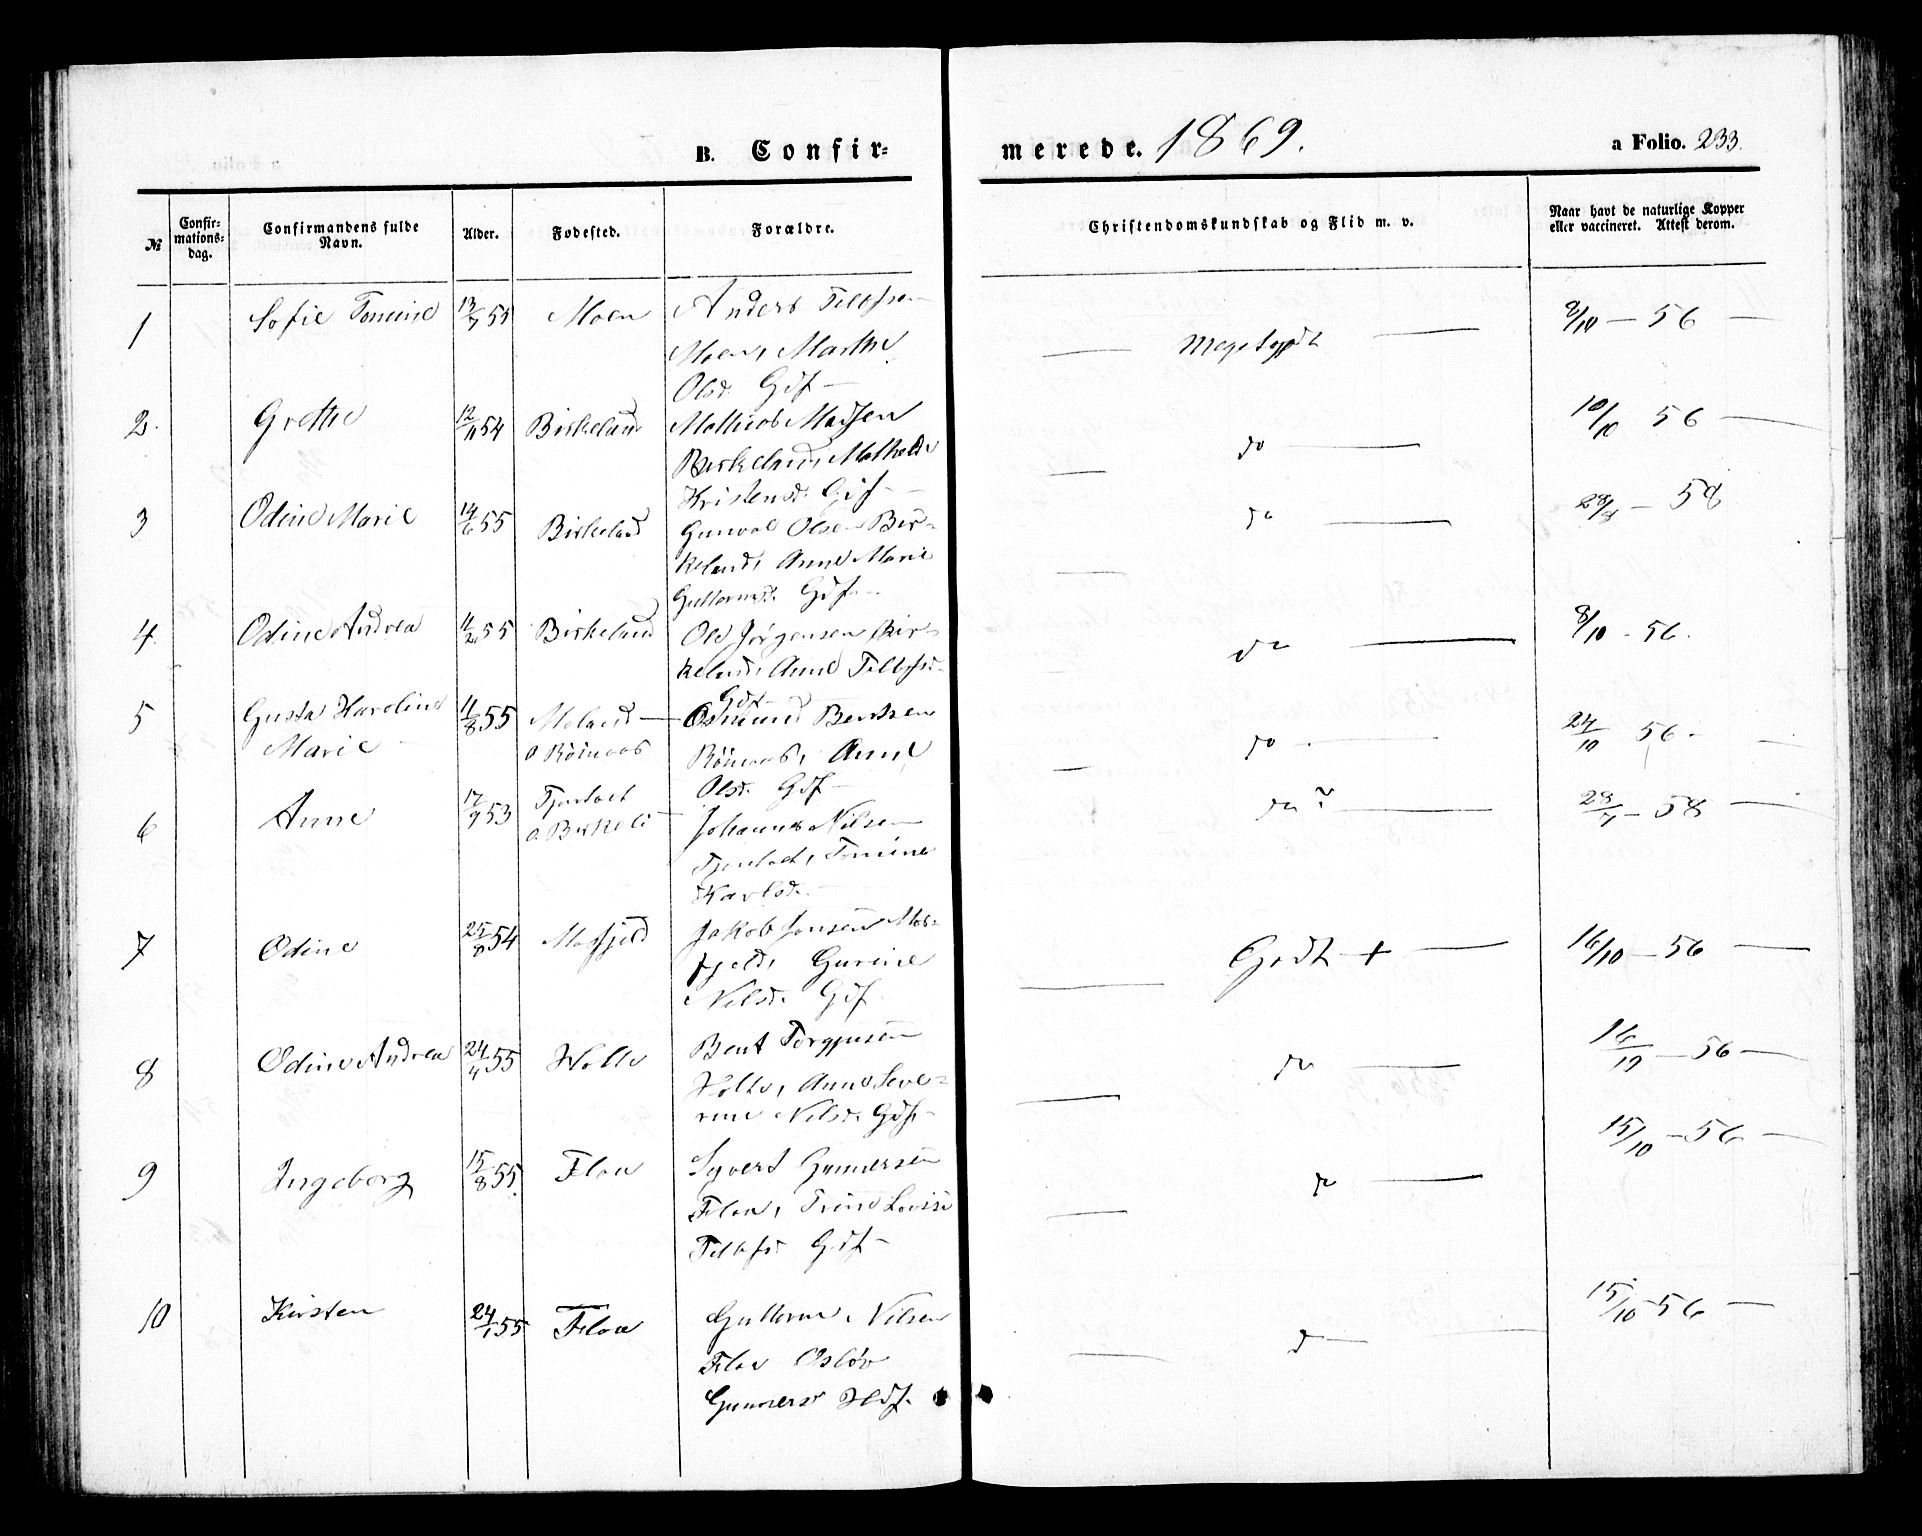 B. Confir-
merede. 1869.
a Folio. 233.
№
Confir-
mations-
dag.
Confirmandens fulde
Navn.
Alder.
Fødested.
Forældre.
Christendomskundskab og Flid m. v.
Naar havt de naturlige Kopper
eller vaccineret. Attest derom.
1 Sofie Tomine 13/7 55 Moen Anders Tellefsen
Moen, Marthe
Olsd. Gdf
Meget godt
8/10 – 56
2. Grethe 12/11 54 Birkeland Mathias Madsen
Birkeland,
Kristensd. Gdf
do
10/10 56
3 Odine Marie 14/6 55 Birkeland Gunval Olsen Bir-
keland, Anne Marie
Guttormsd. Gdf
do
28/8 – 58
4. Odine Andrea 11/2 55 Birkeland Ole Jørgensen Bir-
keland, Anne Tellefsd.
Gdf
do
8/10 - 56.
5 Gusta Karoline
Marie
11/8 55 Moland
Osmund Bentsen
Anne
Olsd. Gdf
do
24/10 56
6 Anne 17/9 53
Johannes Nilsen
Tomine
Karlsd.
do
28/7 – 58
7 Odine 25/8 54 Mosfjeld Jakob Jonsen Mos-
fjeld, Gurine
Nilsd. Gdf
Godt +
16/10 – 56
8 Odine Andrea 24/4 55 Holte Bent Torgjusen
Holte, Anne Seve-
rine Nilsd. Gdf
do
16/10 – 56
9 Ingeborg 15/8 55. Floen Syvert Gunnersen
Floen, Trine Lovise
Tellefsd Gdf
do
15/10 – 56
10 Kirsten 24/1 55 Floen Guttorm Nilsen
Floe Osløv
Gunnersd Hdf.
d
15/10 56